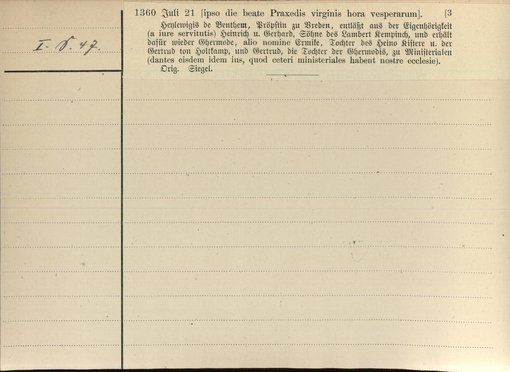 1360 Juli 21 [ipso die beate Praxedis virginis hora vesperarum]. [3
Heylewigis de Benthem, Pröpstin zu Vreden, entläßt aus der Eigenhörigkeit
(a iure servitutis) Heinrich u. Gerhard, Söhne des Lambert Kempinch, und erhält
dafür wieder Ghermode, alio nomine Ermike, Tochter des Heino Kistere u. der
Gertrud von Holtkamp, und Gertrud, die Tochter der Ghermodis, zu Ministerialen
(dantes eisdem idem ius, quod ceteri ministeriales habent nostre ecclesie).
Orig. Siegel.
I. 47.